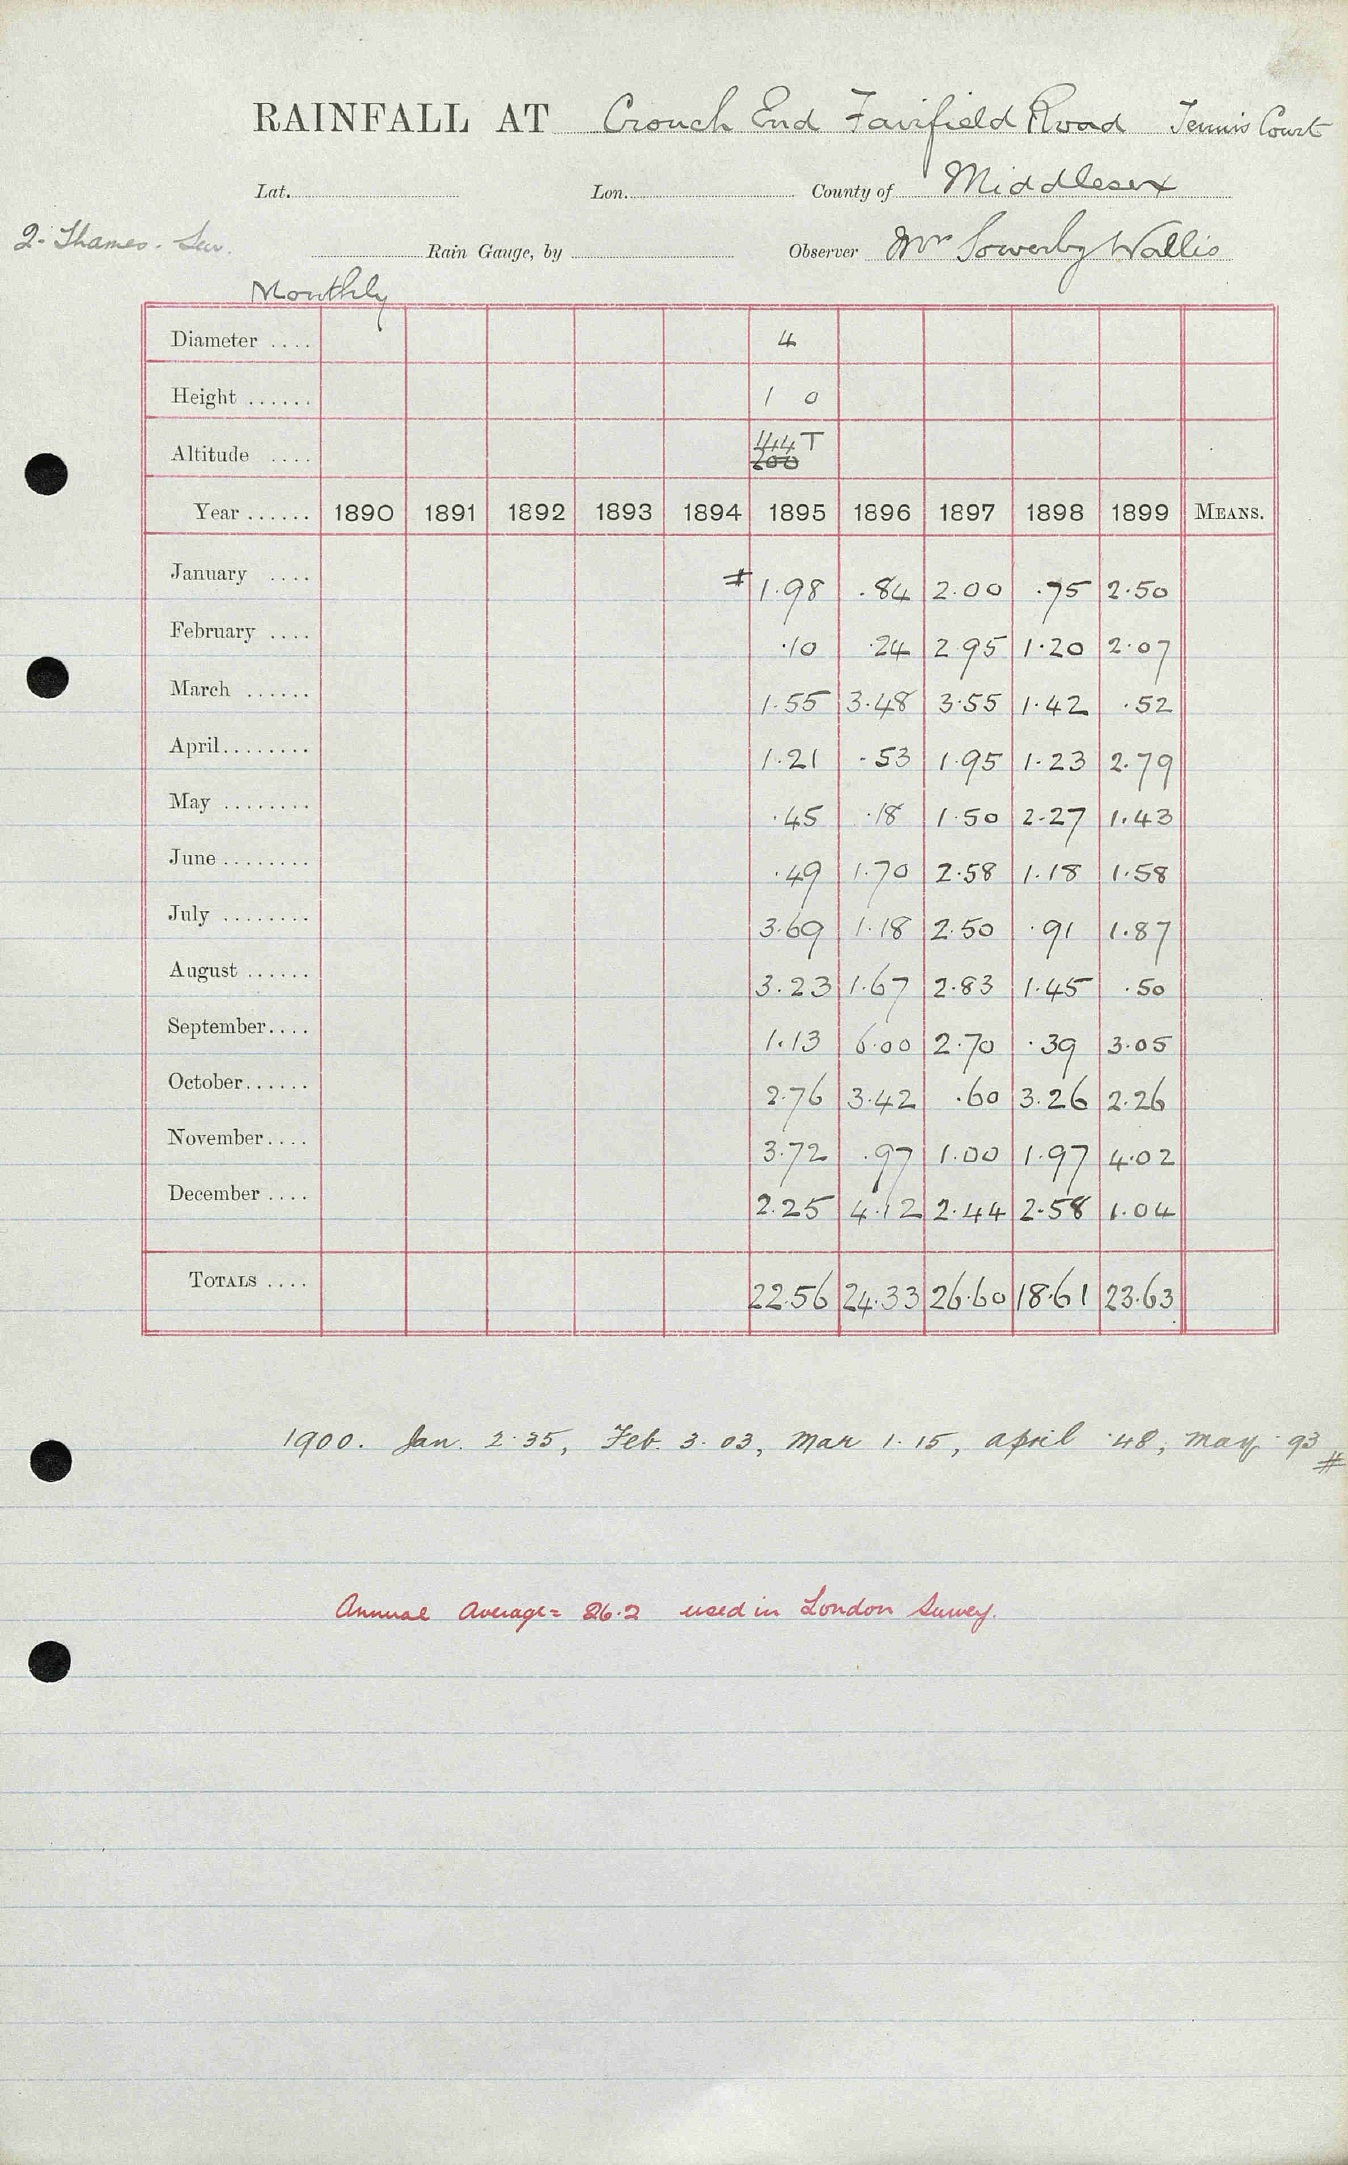 RAINFALL AT Crouch End Fairfield Road Tennis Court
Lat. Lon. County of Middlesex
2. Thames. Sur. Rain Gauge, by Observer Mr Sowerby Wallis
Monthly
Diameter .... 4
Height ...... 1 0
Altitude .... T
200
Year ...... 1890 1891 1892 1893 1894 1895 1896 1897 1898 1899 MEANS.
January .... # 1.98 .84 2.00 .75 2.50
February .... .10 .24 2.95 1.20 2.07
March ...... 1.55 3.48 3.55 1.42 .52
April........ 1.21 .53 1.95 1.23 2.79
May ........ .45 .18 1.50 2.27 1.43
June ........ .49 1.70 2.58 1.18 1.58
July ........ 3.69 1.18 2.50 .91 1.87
August ...... 3.23 1.67 2.83 1.45 .50
September.... 1.13 6.00 2.70 .39 3.05
October...... 2.76 3.42 .60 3.26 2.26
November.... 3.72 .97 1.00 1.97 4.02
December .... 2.25 4.12 2.44 2.58 1.04
TOTALS .... 22.56 24.33 26.60 18.61 23.63
1900. Jan. 2.35, Feb. 3.03, Mar 1.15, April .48, May .93 #
Annual Average = 26.2 used in London Survey.